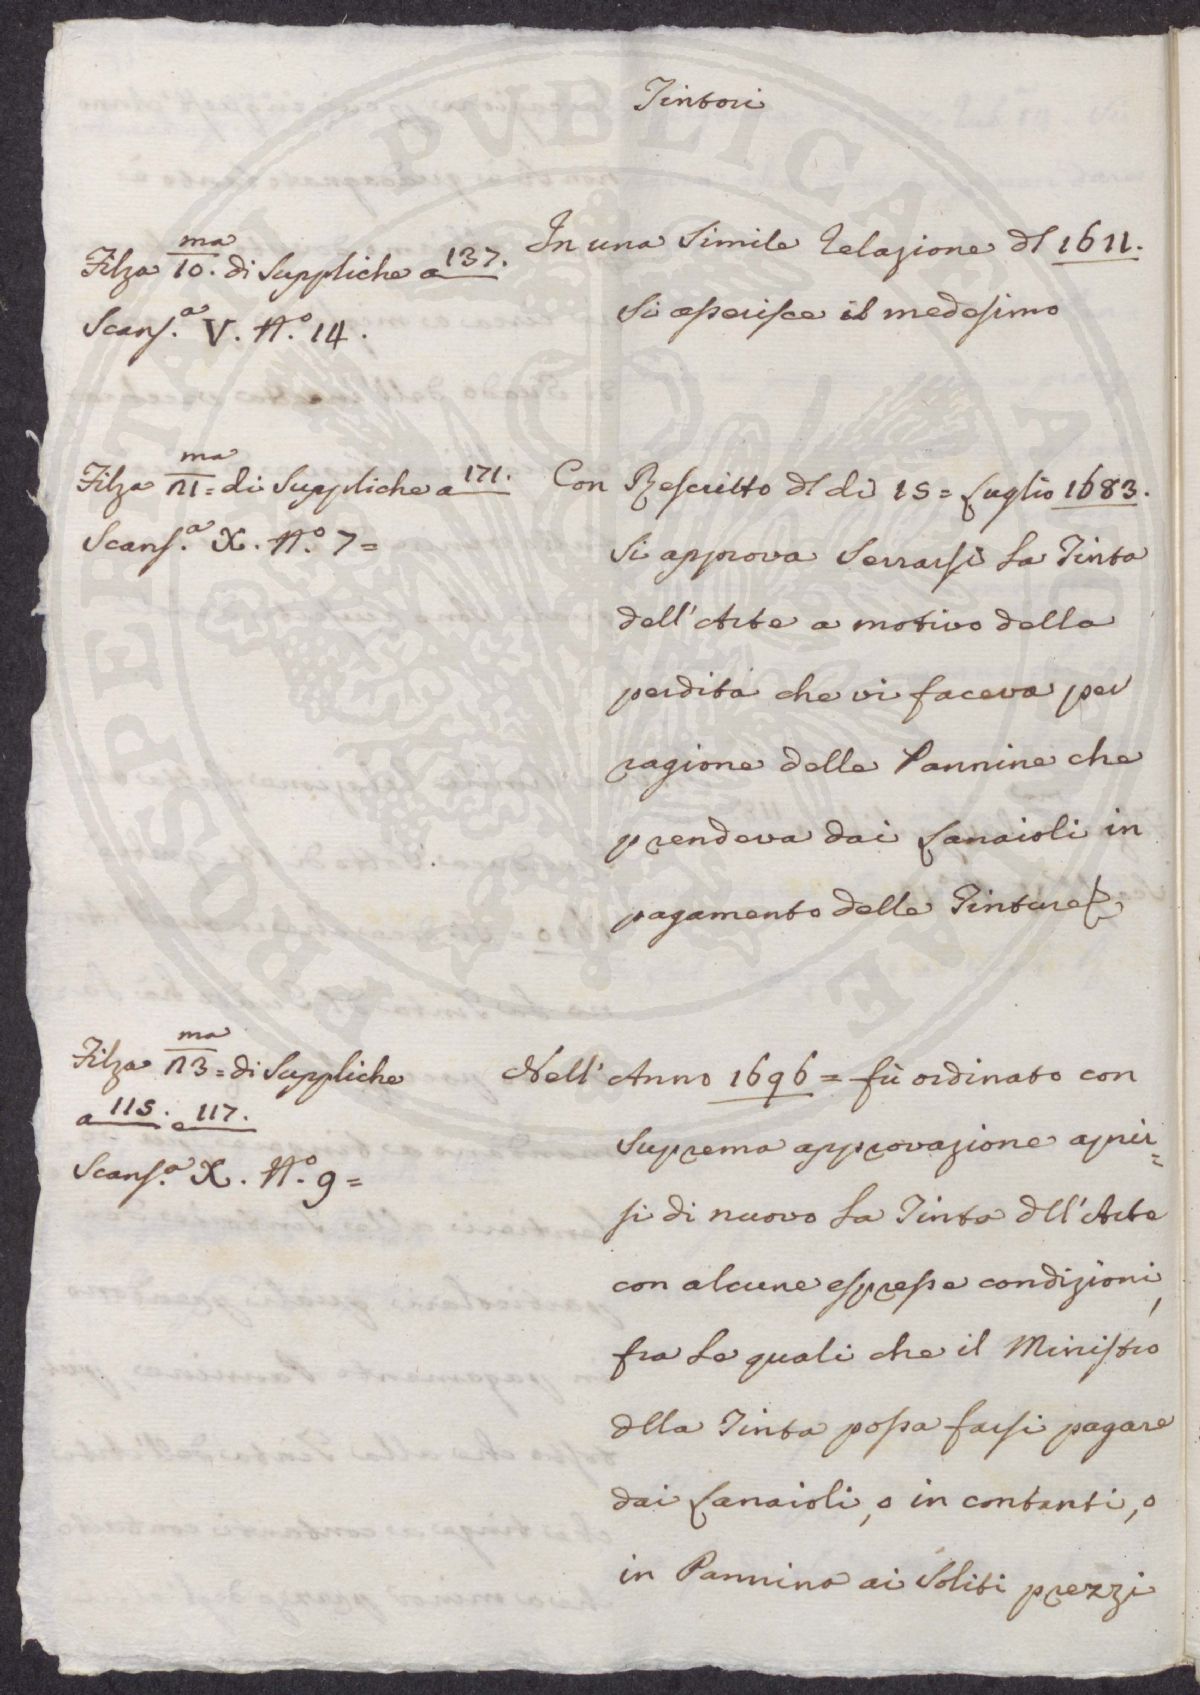 Tintori
Filza 10.ma di Suppliche a 137.
Scans.a V. N.o 14.
In una Simile Relazione dl 1611.
Si asserisce il medesimo
Filza 21=ma di Suppliche a 171.
Scans.a X. N.o 7=
Con Rescritto dl di 15= Luglio 1683.
Si approva Serrarsi La Tinta
dell'Arte a motivo della
perdita che vi faceva per
ragione delle Pannine che
prendeva dai Lanaioli in
pagamento delle Tinture
Filza 23=ma di Suppliche
a 115. e 117.
Scans.a X. N.o 9=
Nell'Anno 1696= fù ordinato con
Suprema approvazione aprir=
si di nuovo La Tinta dll'Arte
con alcune espresse condizioni,
fra Le quali che il Ministro
dlla Tinta possa farsi pagare
dai Lanaioli, o in contanti, o
in Pannina ai Soliti prezzi
PROSPERITATI PVBLICAE AVGENDAE